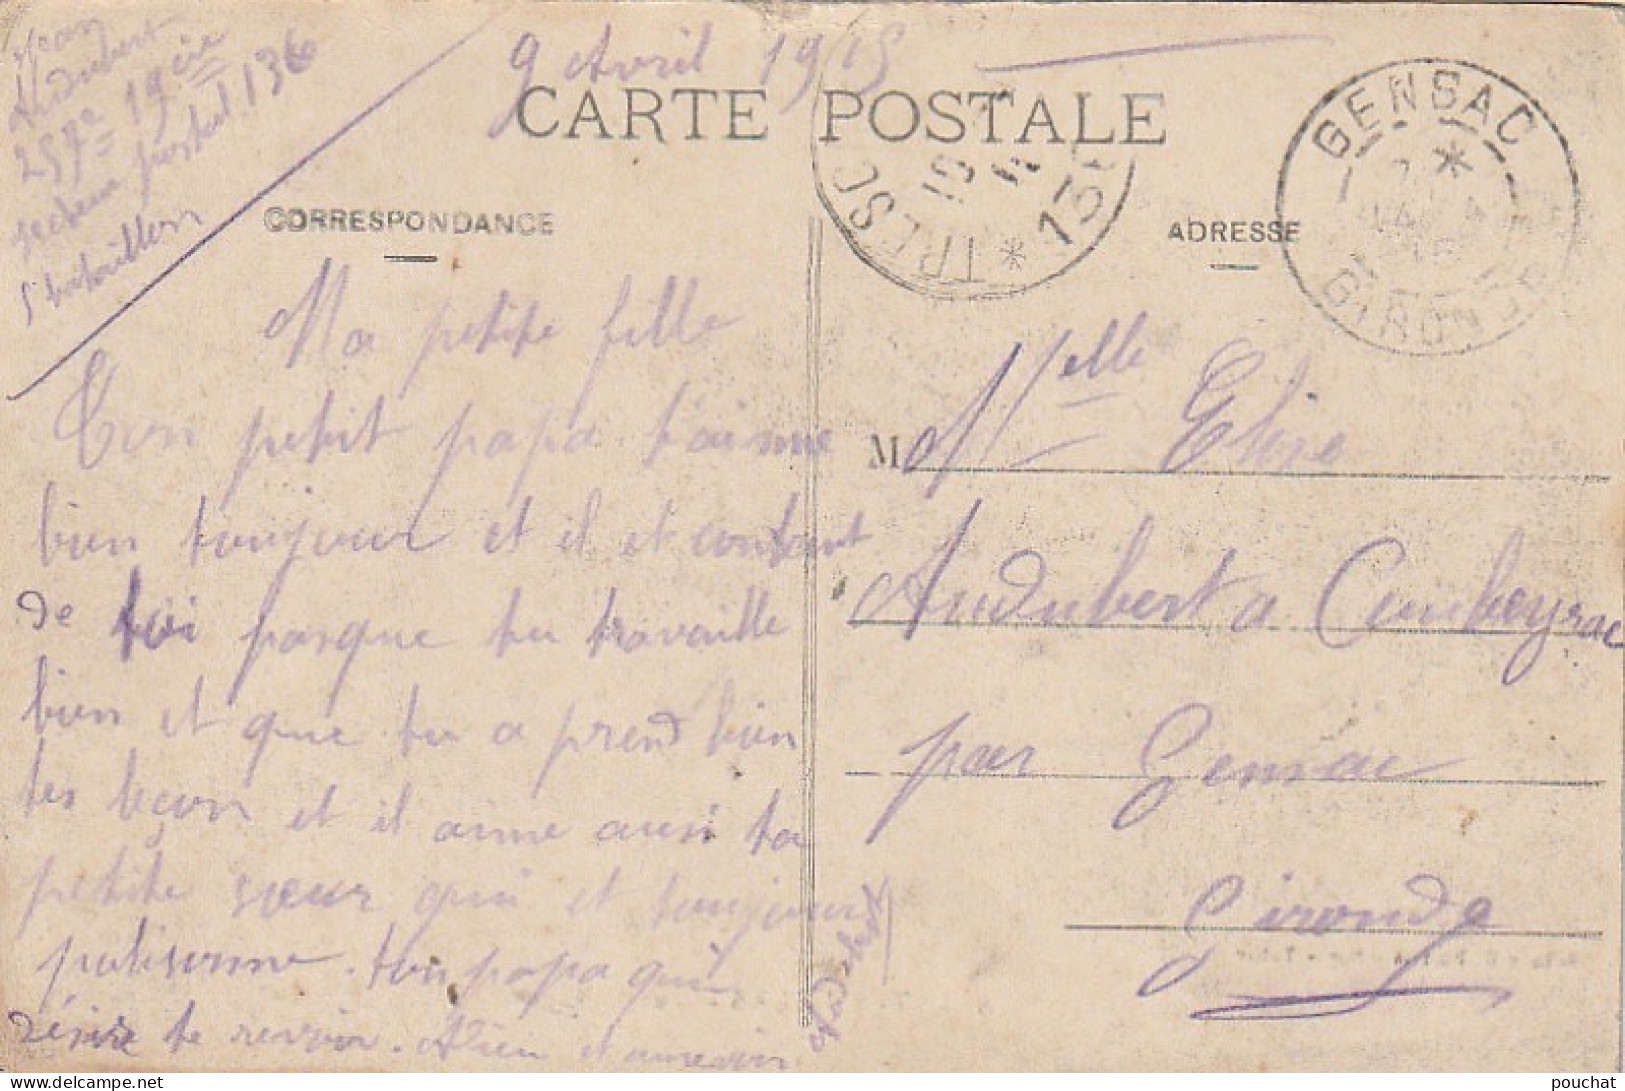 Jean
Audubert
257e 19 cie
secteur postal 136
5 bataillon
9 Avril 1915
CARTE POSTALE
TRESOR
10
4
136
GENSAC
GIRONDE
CORRESPONDANCE
ADRESSE
Ma petite fille
Ton petit papa t'aime
bien toujour et il et contant
de toi pasque tu travaille
bien et que tu a prend bien
tes leçon et il aime ausi ta
petite sœur qui et toujour
polisonne. ton papa qui
désire te revoir. Adieu et aurevoir
Audubert
M Melle Elise
Audubert a Caubeyrac
par Gensac
Gironde
© pouchat